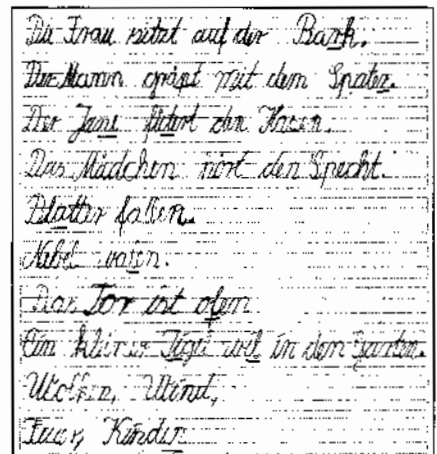 Die Frau sitzt auf der Bank.
Der Mann gräpt mit dem Spaten.
Der Jani den
Das Mädchen hört den Specht.
Blatter fallen.
Nebel
Das Tor ist ofen
Ein kleiner Jgel wil in den Garten.
Wolken, Wind,
Kinder